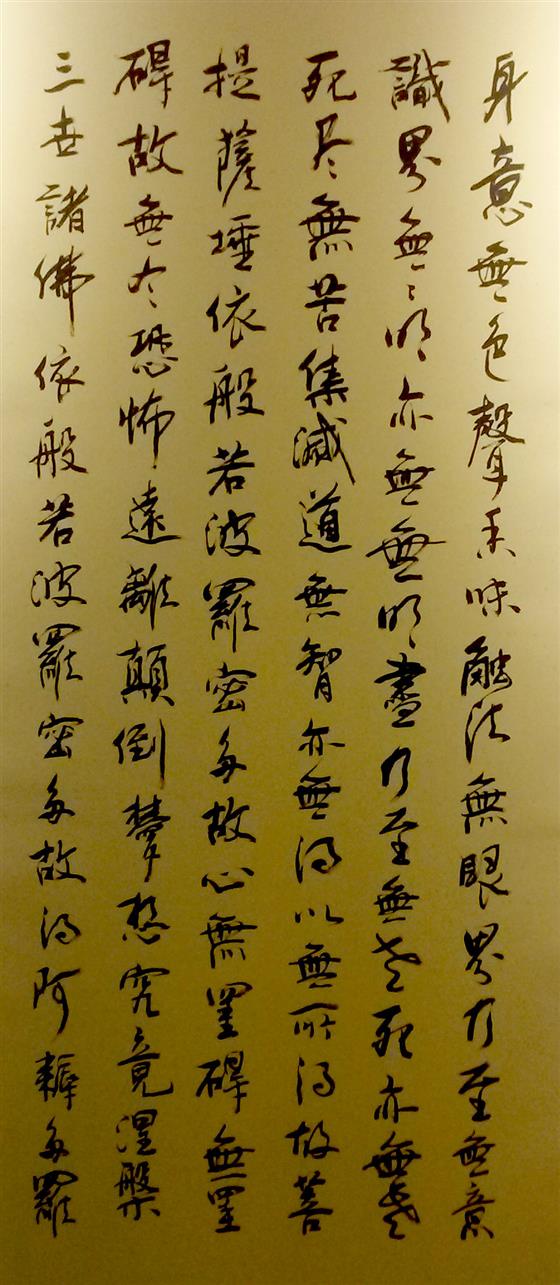 身意無色聲香味觸法無眼界乃至無意
識界無〻明亦無無明盡乃至無老死亦無老
死尽無苦集滅道無智亦無得以無所得故菩
提薩埵依般若波羅密多故心無罣碍無罣
碍故無有恐怖遠離顛倒夢想究竟涅槃
三世諸佛依般若波羅密多故得阿耨多羅